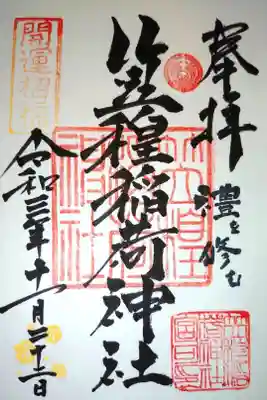 奉拝
禮を修む
笠䅣稲荷神社
令和三年十一月二十二日
開運招福